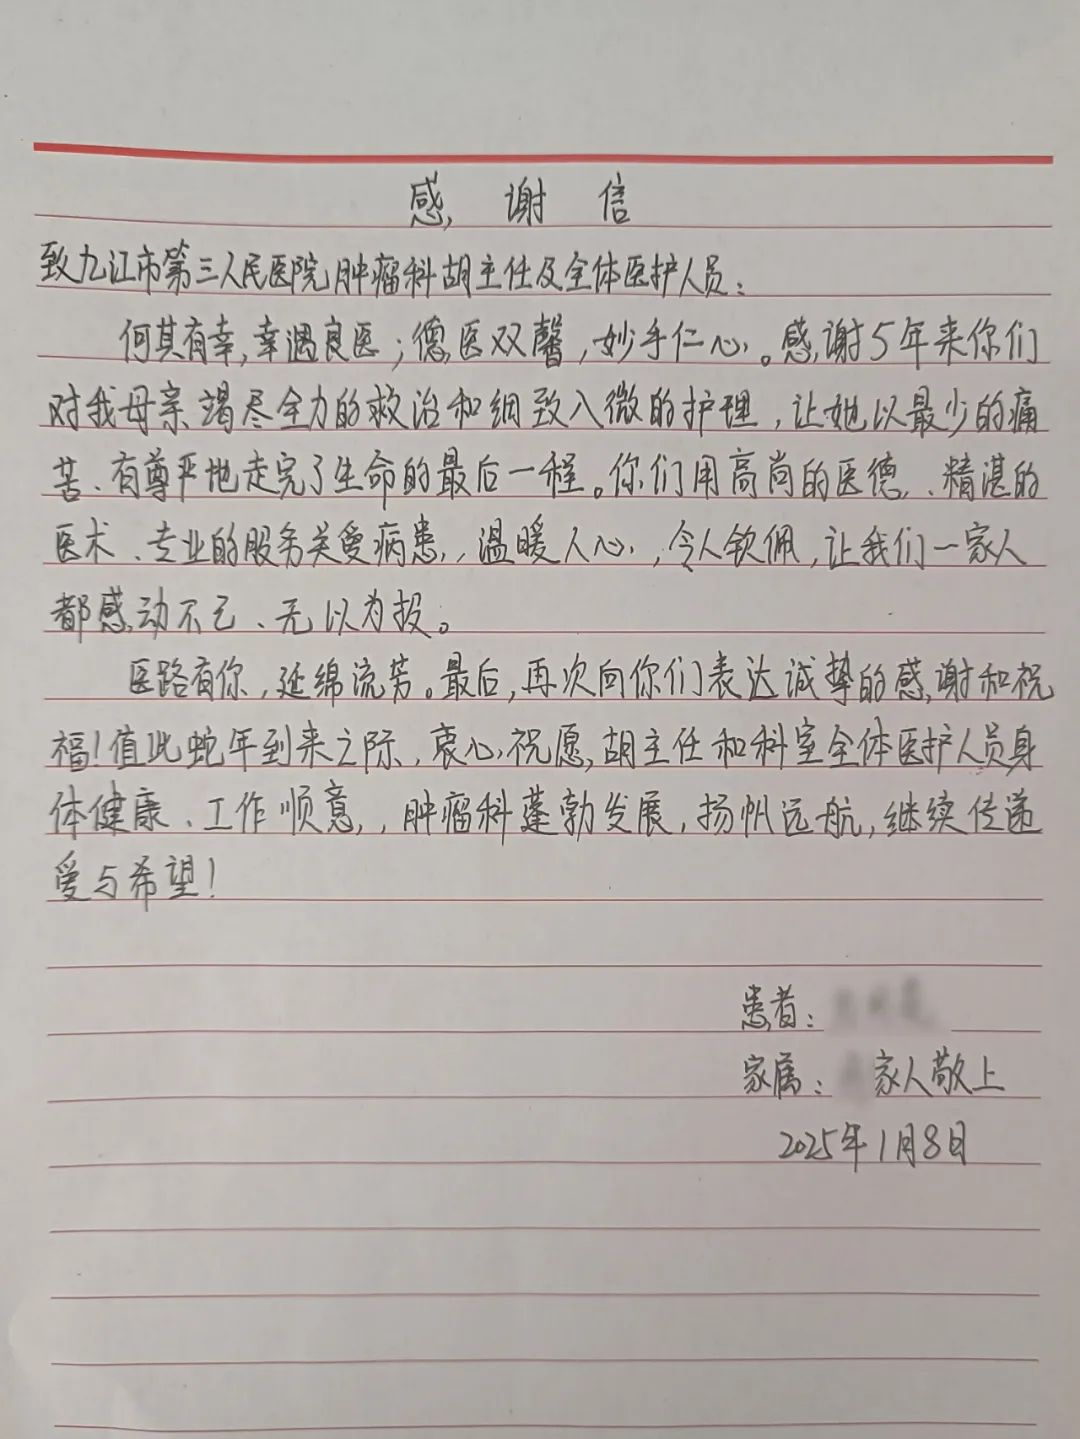 感谢信
致九江市第三人民医院肿瘤科胡主任及全体医护人员：
何其有幸，幸遇良医；德医双馨，妙手仁心。感谢5年来你们
对我母亲竭尽全力的救治和细致入微的护理，让她以最少的痛
苦、有尊严地走完了生命的最后一程。你们用高尚的医德、精湛的
医术、专业的服务关爱病患，温暖人心，令人钦佩，让我们一家人
都感动不已、无以为报。
医路有你，延绵流芳。最后，再次向你们表达诚挚的感谢和祝
福！值此蛇年到来之际，衷心祝愿胡主任和科室全体医护人员身
体健康、工作顺意，肿瘤科蓬勃发展，扬帆远航，继续传递
爱与希望！
患者：
家属：家人敬上
2025年1月8日